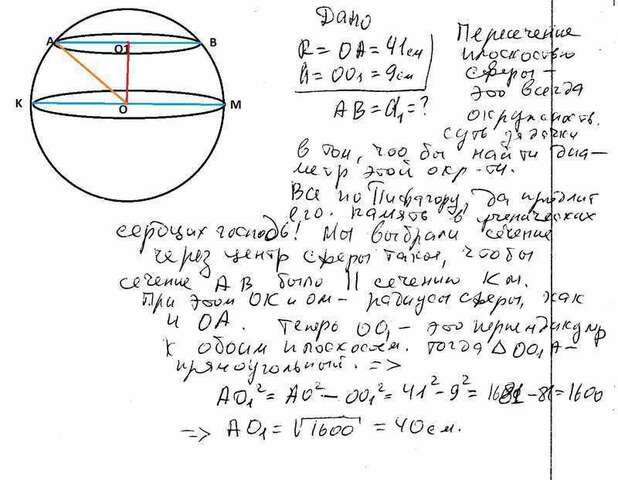 A
O1
B
K
O
M
Дано
R = OA = 41см
h = OO₁ = 9см
AB = d₁ = ?
Пересечение
плоскостью
сферы –
это всегда
окружность.
суть задачи
в том, что бы найти диа-
метр этой окр-ти.
Все по Пифагору, да продлит
его память в ученических
сердцах господь! Мы выбрали сечение
через центр сферы такое, чтобы
сечение AB было || сечению KM.
При этом OK и OM – радиусы сферы, как
и OA. Теперь OO₁ – это перпендикуляр
к обоим плоскостям. Тогда Δ OO₁A –
прямоугольный. =>
AO₁² = AO² – OO₁² = 41² – 9² = 1681 – 81 = 1600
=> AO₁ = √1600 = 40 см.